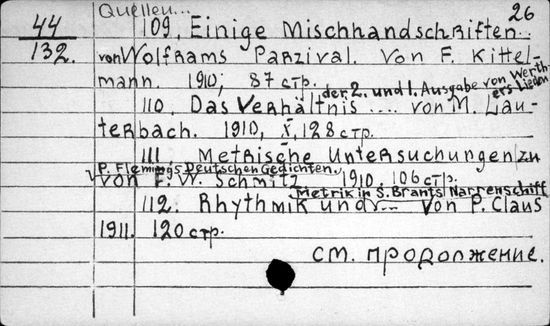 Quellen...
26
44
132.
109. Einige Mischhandschriften
von Wolframs Parzival. Von F. Kittel-
mann. 1910, 87 стр.
der 2. und 1. Ausgabe von Werth-
ers Leiden
110. Das Verhältnis .... von M. Lau-
terbach. 1910, X, 128 стр.
111. Metrische Untersuchungen zu
P. Flemings Deutschen Gedichten.
von F. W. Schmitz 1910, 106 стр.
Metrik in S. Brants Narrenschiff
112. Rhythmik und ... von P. Claus
1911. 120 стр.
см. продолжение.